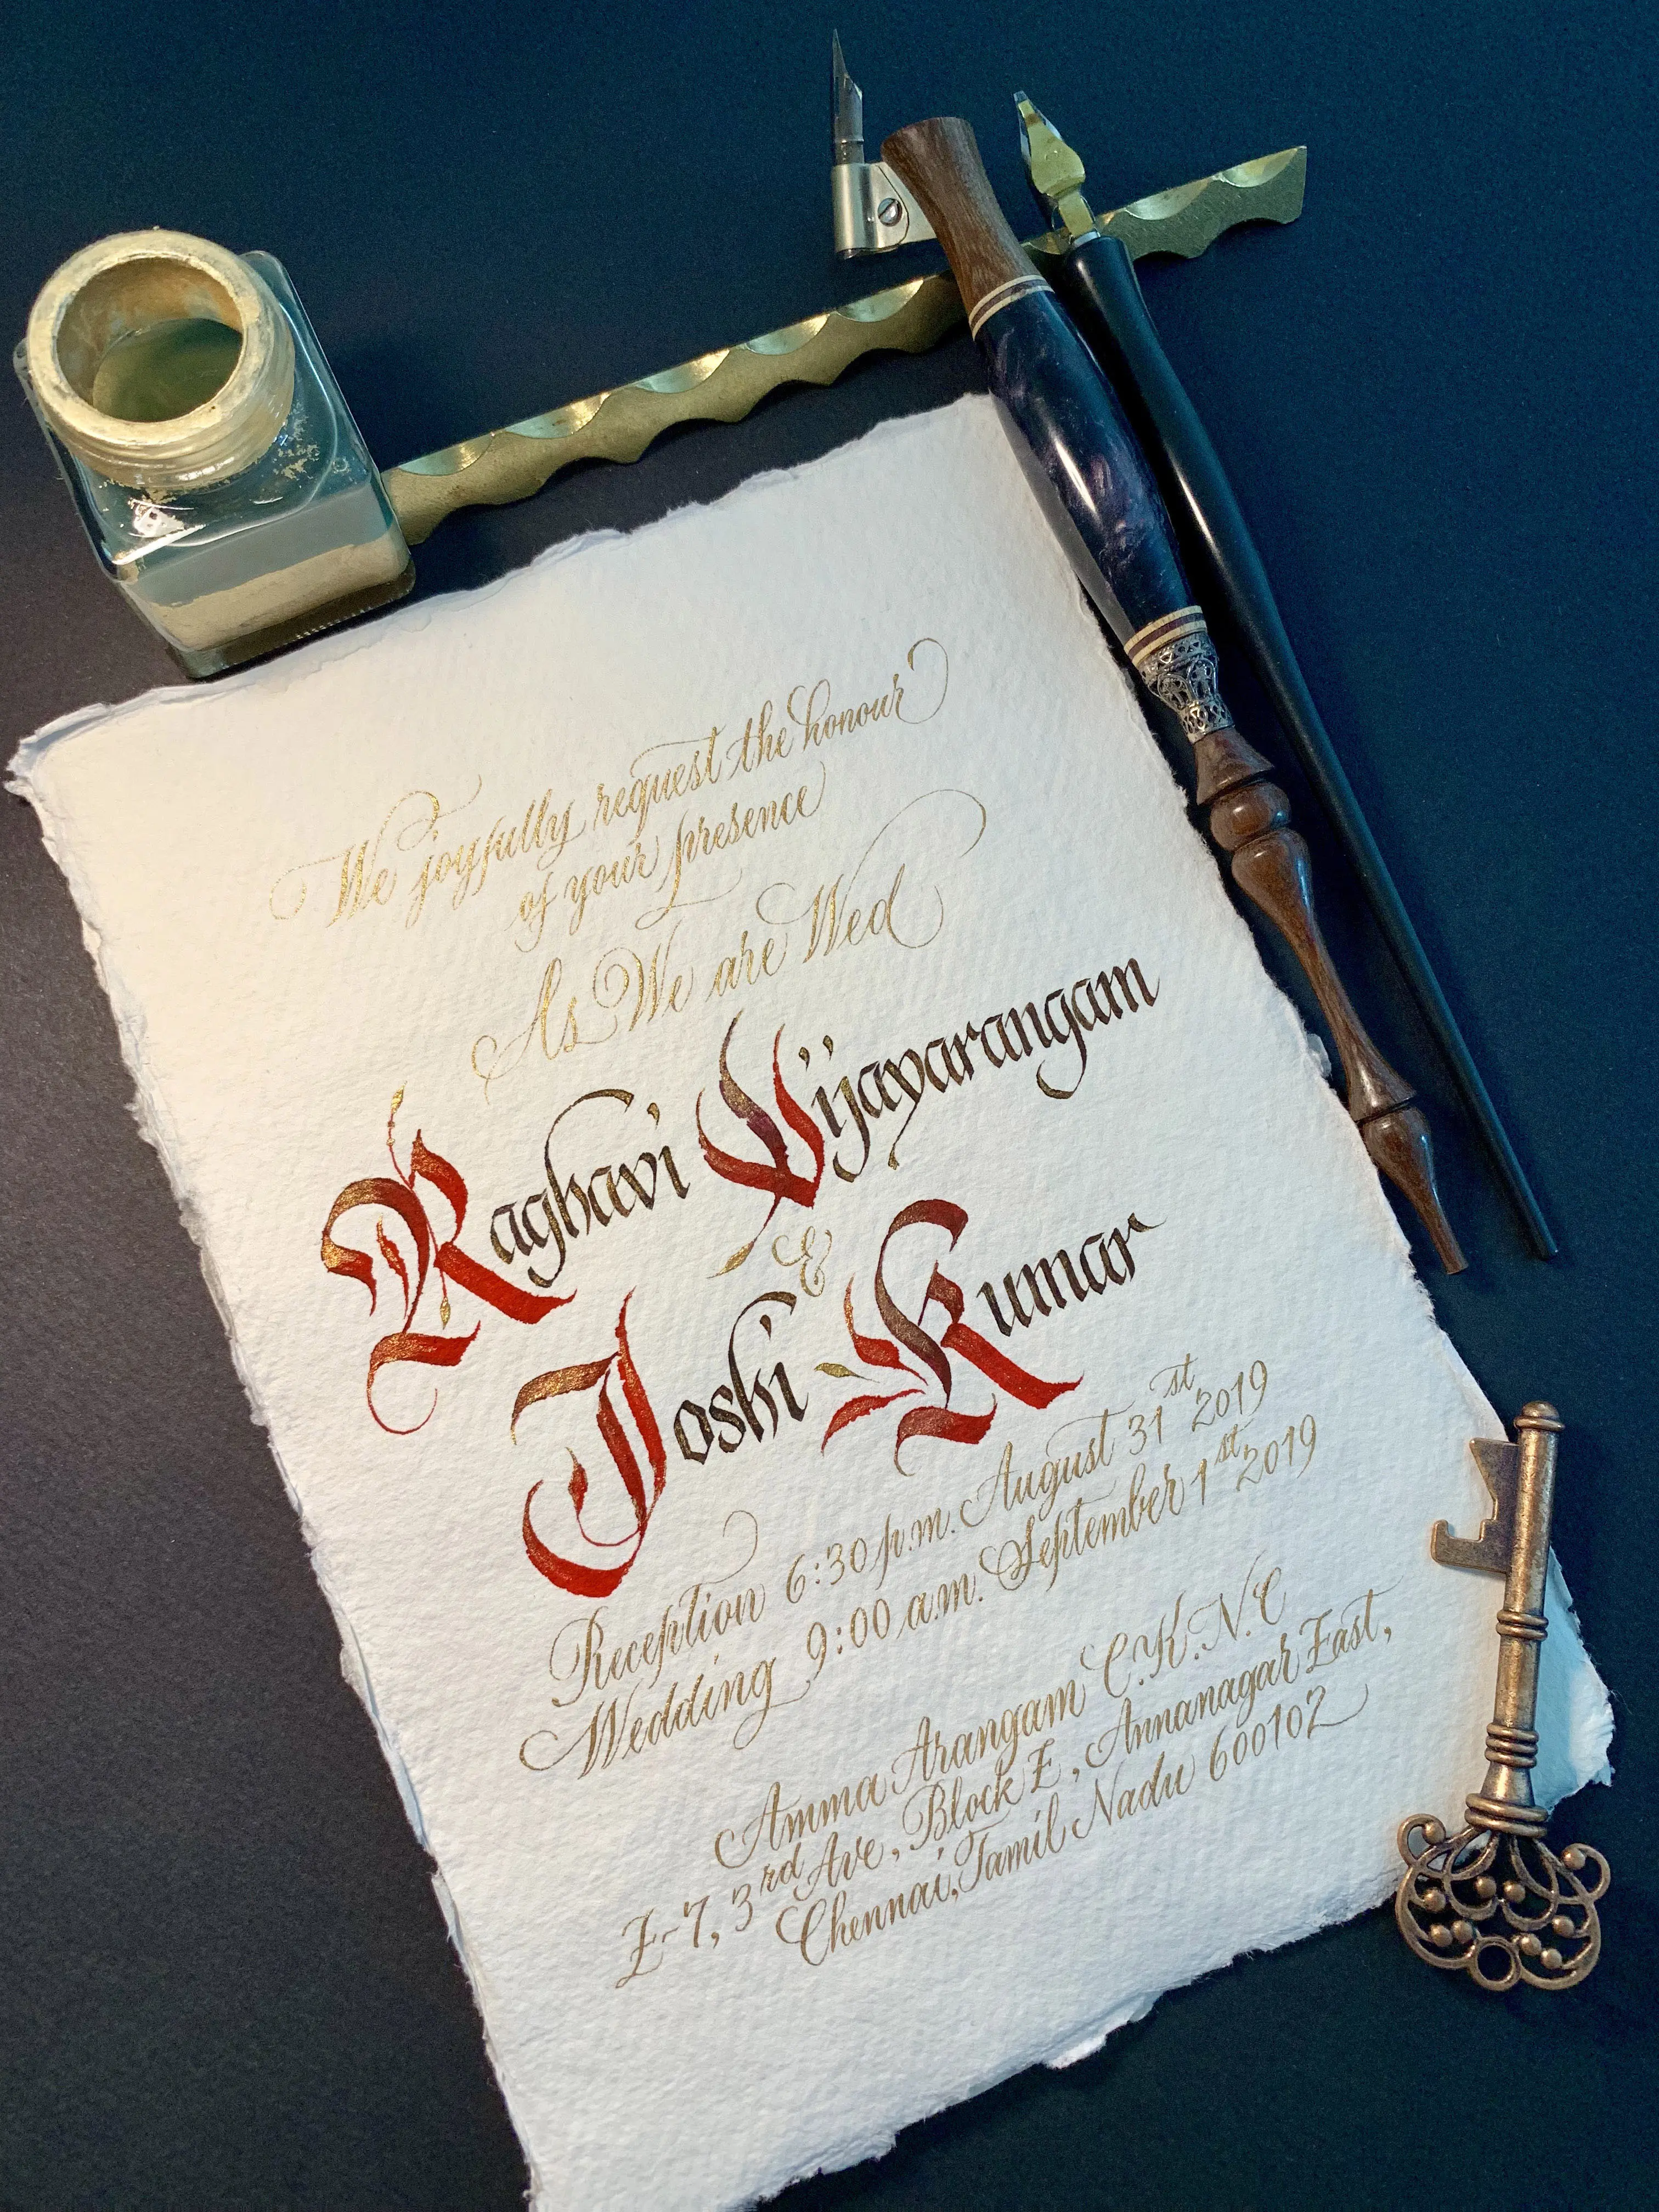 We joyfully request the honour
of your presence
As We are Wed
Raghavi Vijayarangam
&
Joshi Kumar
Reception 6:30 p.m. August 31st 2019
Wedding 9:00 a.m. September 1st 2019
Amma Arangam C.K.N.C
E-7, 3rd Ave, Block E, Annanagar East,
Chennai, Tamil Nadu 600102